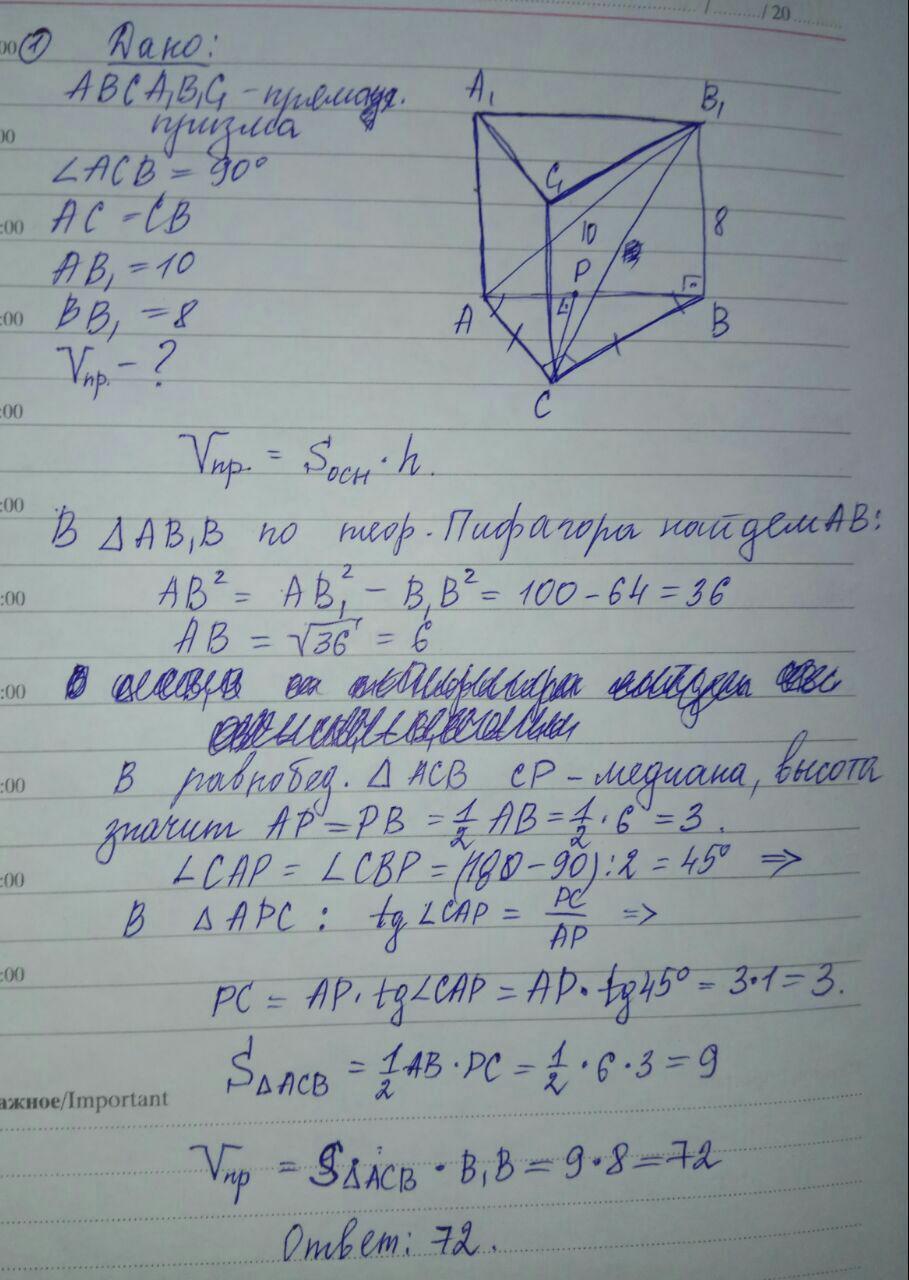 / / 20
① Дано:
ABCA₁B₁C₁ – прямая
призма
∠ACB = 90°
AC = CB
AB₁ = 10
BB₁ = 8
Vпр. – ?
A₁
B₁
C₁
10
8
P
A
B
C
Vпр. = Sосн · h.
В △AB₁B по теор. Пифагора найдем AB:
AB² = AB₁² – B₁B² = 100 – 64 = 36
AB = √36 = 6
В равнобед. △ACB CP – медиана, высота
значит AP = PB = 1/2 AB = 1/2 · 6 = 3.
∠CAP = ∠CBP = (180 – 90) : 2 = 45° ⇒
В △APC : tg∠CAP = PC/AP ⇒
PC = AP · tg∠CAP = AP · tg45° = 3·1 = 3.
S△ACB = 1/2 AB · PC = 1/2 · 6 · 3 = 9
ажное/Important
Vпр = S△ACB · B₁B = 9·8 = 72
Ответ: 72.
:00
:00
:00
:00
:00
:00
:00
:00
:00
:00